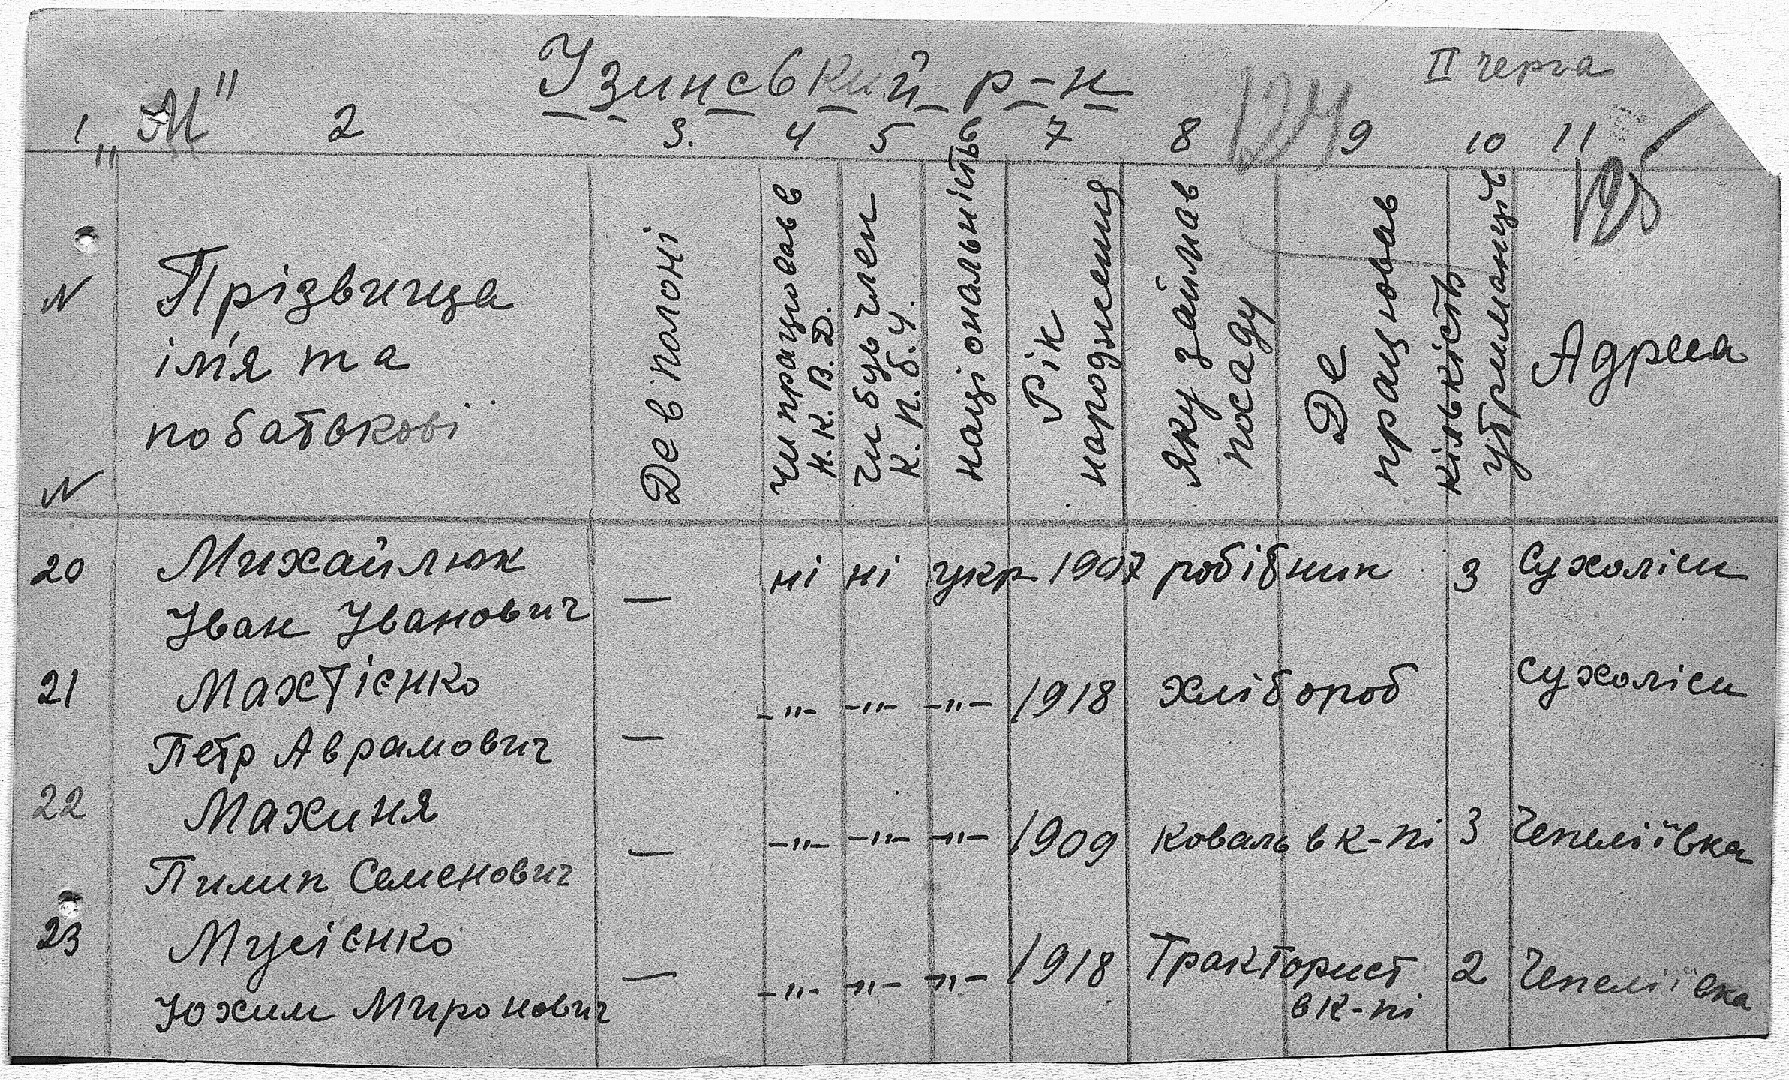 Узинський р-н
ІІ черга
„М"
1 2 3. 4 5 6 7 8 9 10 11
124
125
N N
Прізвища
ім'я та
по батькові
Де в полоні
Чи працював в
Н.К.В.Д.
Чи був член
К.П.б.У.
національність
Рік
народження
яку займав
посаду
Де
працював
кількість
утриманців
Адреса
20 Михайлюк — ні ні укр 1907 робібник 3 Сухоліси
Іван Іванович
21 Махтієнко — -"- -"- -"- 1918 хлібороб Сухоліси
Петр Аврамович
22 Махиня — -"- -"- -"- 1909 коваль в к-пі 3 Чепеліївка
Пилип Семенович
23 Мусієнко — -"- -"- -"- 1918 Тракторист 2 Чепеліївка
Юхим Миронович в к-пі